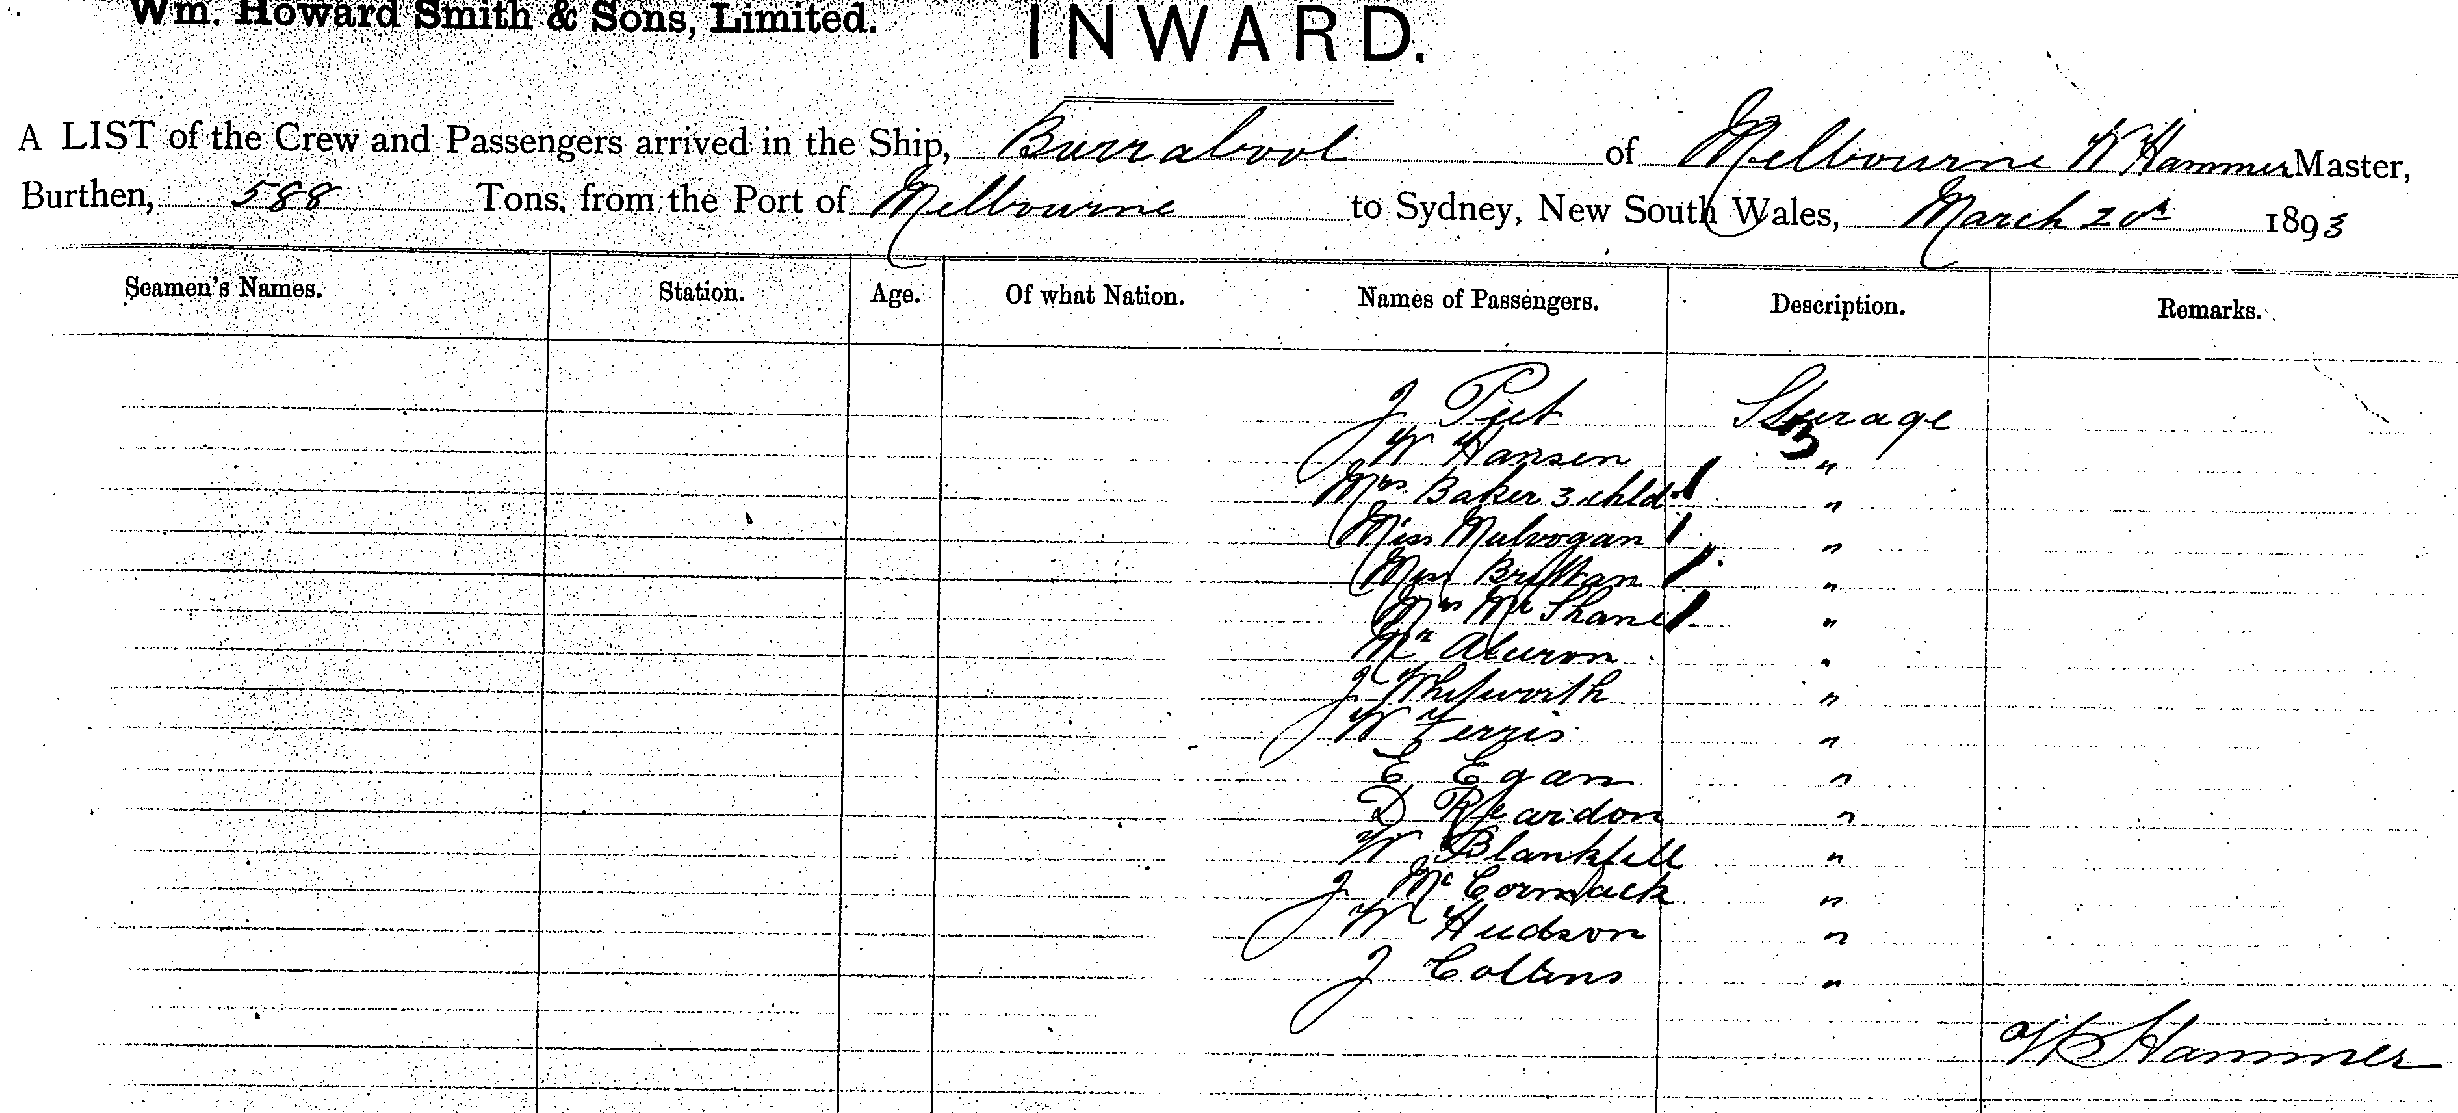 Wm. Howard Smith & Sons, Limited.
INWARD.
A LIST of the Crew and Passengers arrived in the Ship, Burrabool of Melbourne W Hammer Master,
Burthen, 588 Tons, from the Port of Melbourne to Sydney, New South Wales, March 20th 1893
Seamen's Names. Station. Age. Of what Nation. Names of Passengers. Description. Remarks.
J Steerage
W Hansen "
3
Mrs Baker 3 chld "
Miss Mulvogan "
Brittan "
Mrs McShane "
Mr "
J Whitworth "
W Ferris "
E Egan "
D Reardon "
W "
J McCormack "
W Hudson "
J Collins "
W Hammer